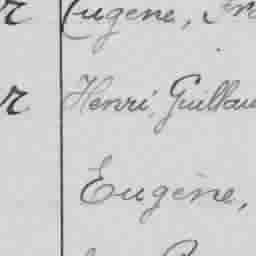 Eugène, Fr
Henri, Guillau
Eugène,